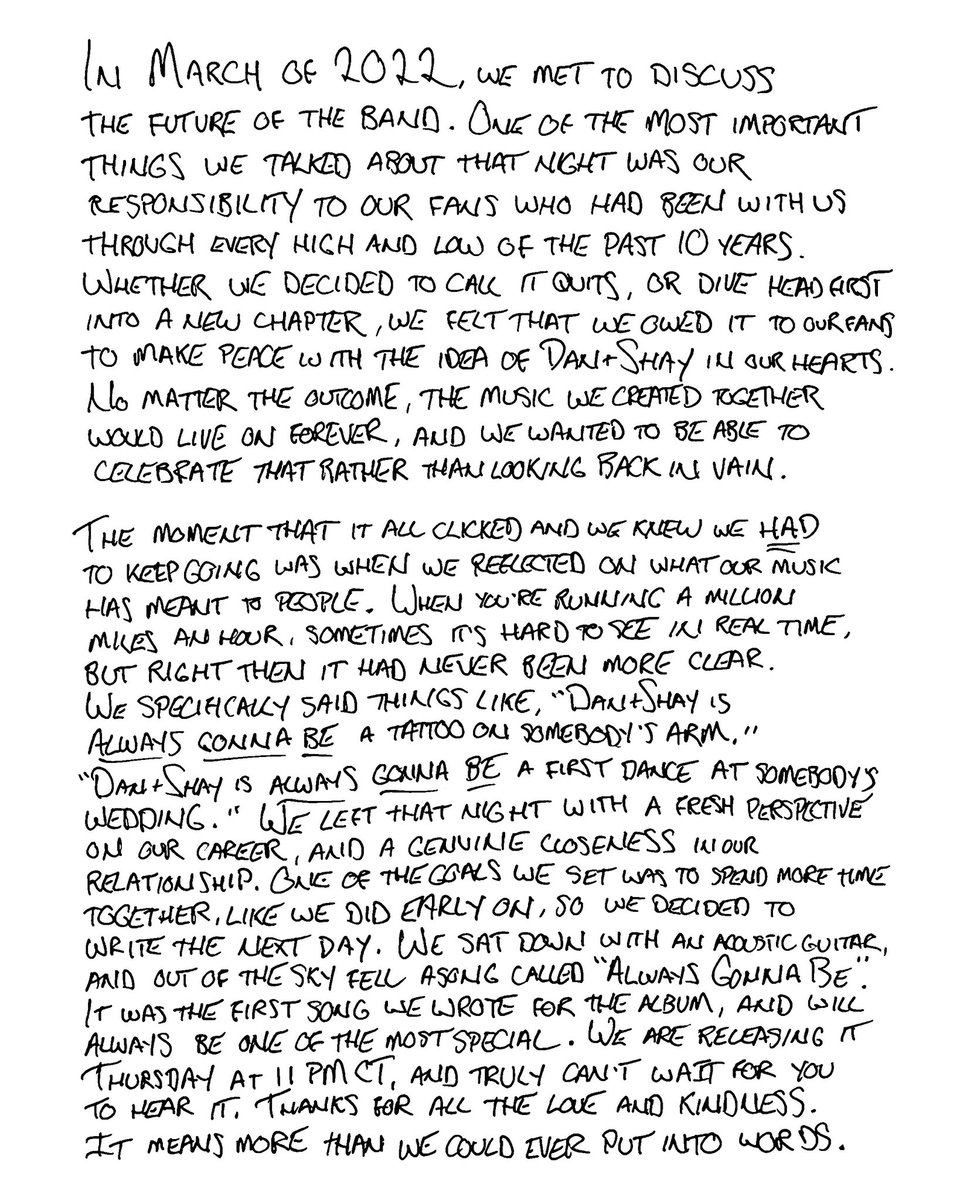 In March of 2022, we met to discuss
the future of the band. One of the most important
things we talked about that night was our
responsibility to our fans who had been with us
through every high and low of the past 10 years.
Whether we decided to call it quits, or dive head first
into a new chapter, we felt that we owed it to our fans
to make peace with the idea of Dan+Shay in our hearts.
No matter the outcome, the music we created together
would live on forever, and we wanted to be able to
celebrate that rather than looking back in vain.
The moment that it all clicked and we knew we had
to keep going was when we reflected on what our music
has meant to people. When you're running a million
miles an hour, sometimes it's hard to see in real time,
but right then it had never been more clear.
We specifically said things like, "Dan+Shay is
always gonna be a tattoo on somebody's arm."
"Dan+Shay is always gonna be a first dance at somebody's
wedding." We left that night with a fresh perspective
on our career, and a genuine closeness in our
relationship. One of the goals we set was to spend more time
together, like we did early on, so we decided to
write the next day. We sat down with an acoustic guitar,
and out of the sky fell a song called "Always Gonna Be".
It was the first song we wrote for the album, and will
always be one of the most special. We are releasing it
Thursday at 11 PM CT, and truly can't wait for you
to hear it. Thanks for all the love and kindness.
It means more than we could ever put into words.